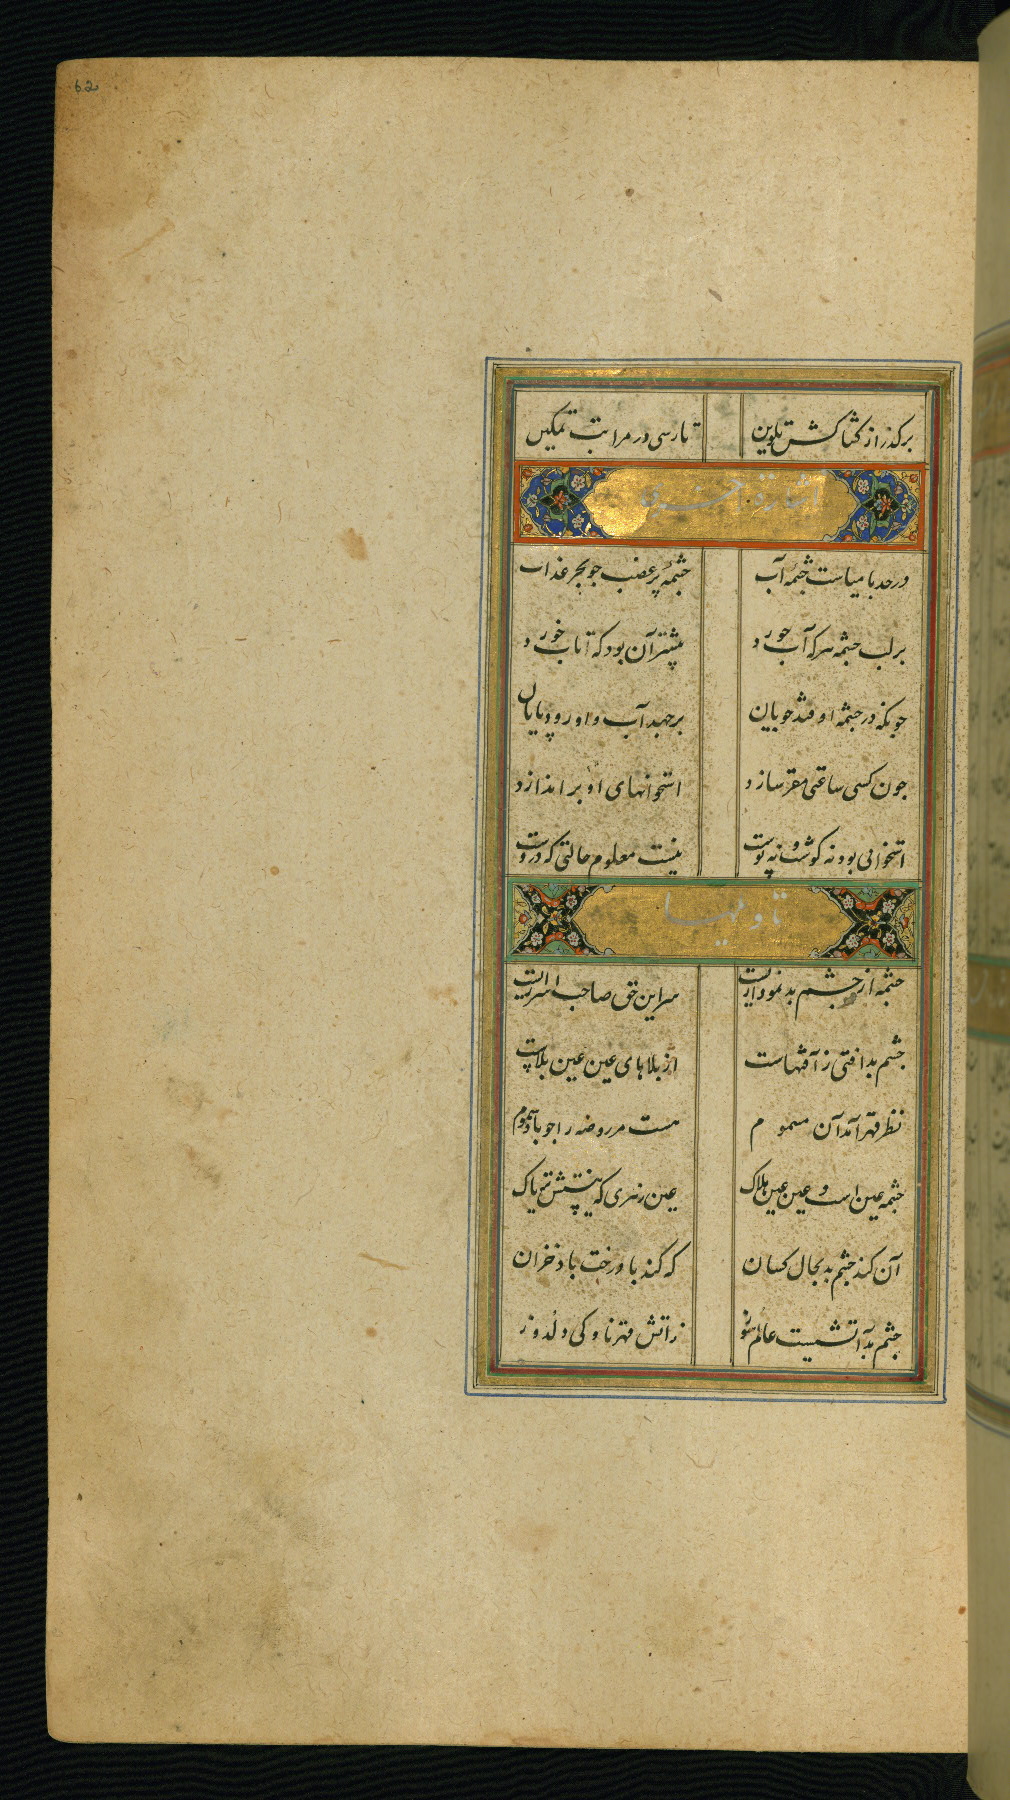 62
برکذر از کشاکش تلوین تا رسی در مراتب تمکین
اشارة اخری
در حد بامیاست چشمه آب چشمه پر غضب جو بحر عذاب
بر لب چشمه هرکه آب خورد پیشتر آن بود که تاب خورد
جونکه در چشمه او فتد جویان برجهد آب و او رود پایان
جون کسی ساعتی مقر سازد استخوانهای او بر اندازد
استخوانی بود نه کوشت و نه پوست نیست معلوم حالتی که دروست
تاویلها
چشمه از چشم بد نموداریست سر این حق صاحب اسراریست
چشم بد افتی ز آفتهاست از بلاهای عین عین بلاست
نظر قهر آمد آن مسموم هست مر روضه را جو باد سموم
چشمه عین است و عین عین هلاک عین زهری که نیستش تریاک
آن کند چشم بد بحال کسان که کند با درخت باد خزان
چشم بد آتشیست عالم سوز ز آتش قهر ناوکی دلدوز